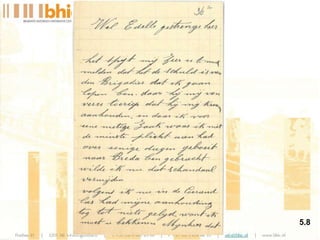 bhi
36
Wel Edelle gestrenge heer
het spijt mij Zeer u te
melden dat het de schuld is van
den Brigadier dat ik gaan
lopen ben. daar hij mij van
verre toeriep dat hij mij
aanhouden, en daar ik voor
eene nietige Zaak waar ik niet
de minste plicht aan had
over eenige dagen geboeit
naar Breda ben gebracht
wilde ik nu dat schandaal
vermijden
volgens ik nu in de
las had mijne aanhouding
tog tot niets gelijd want ik
moet u bekennen dat
5.8
www.bhi.nl